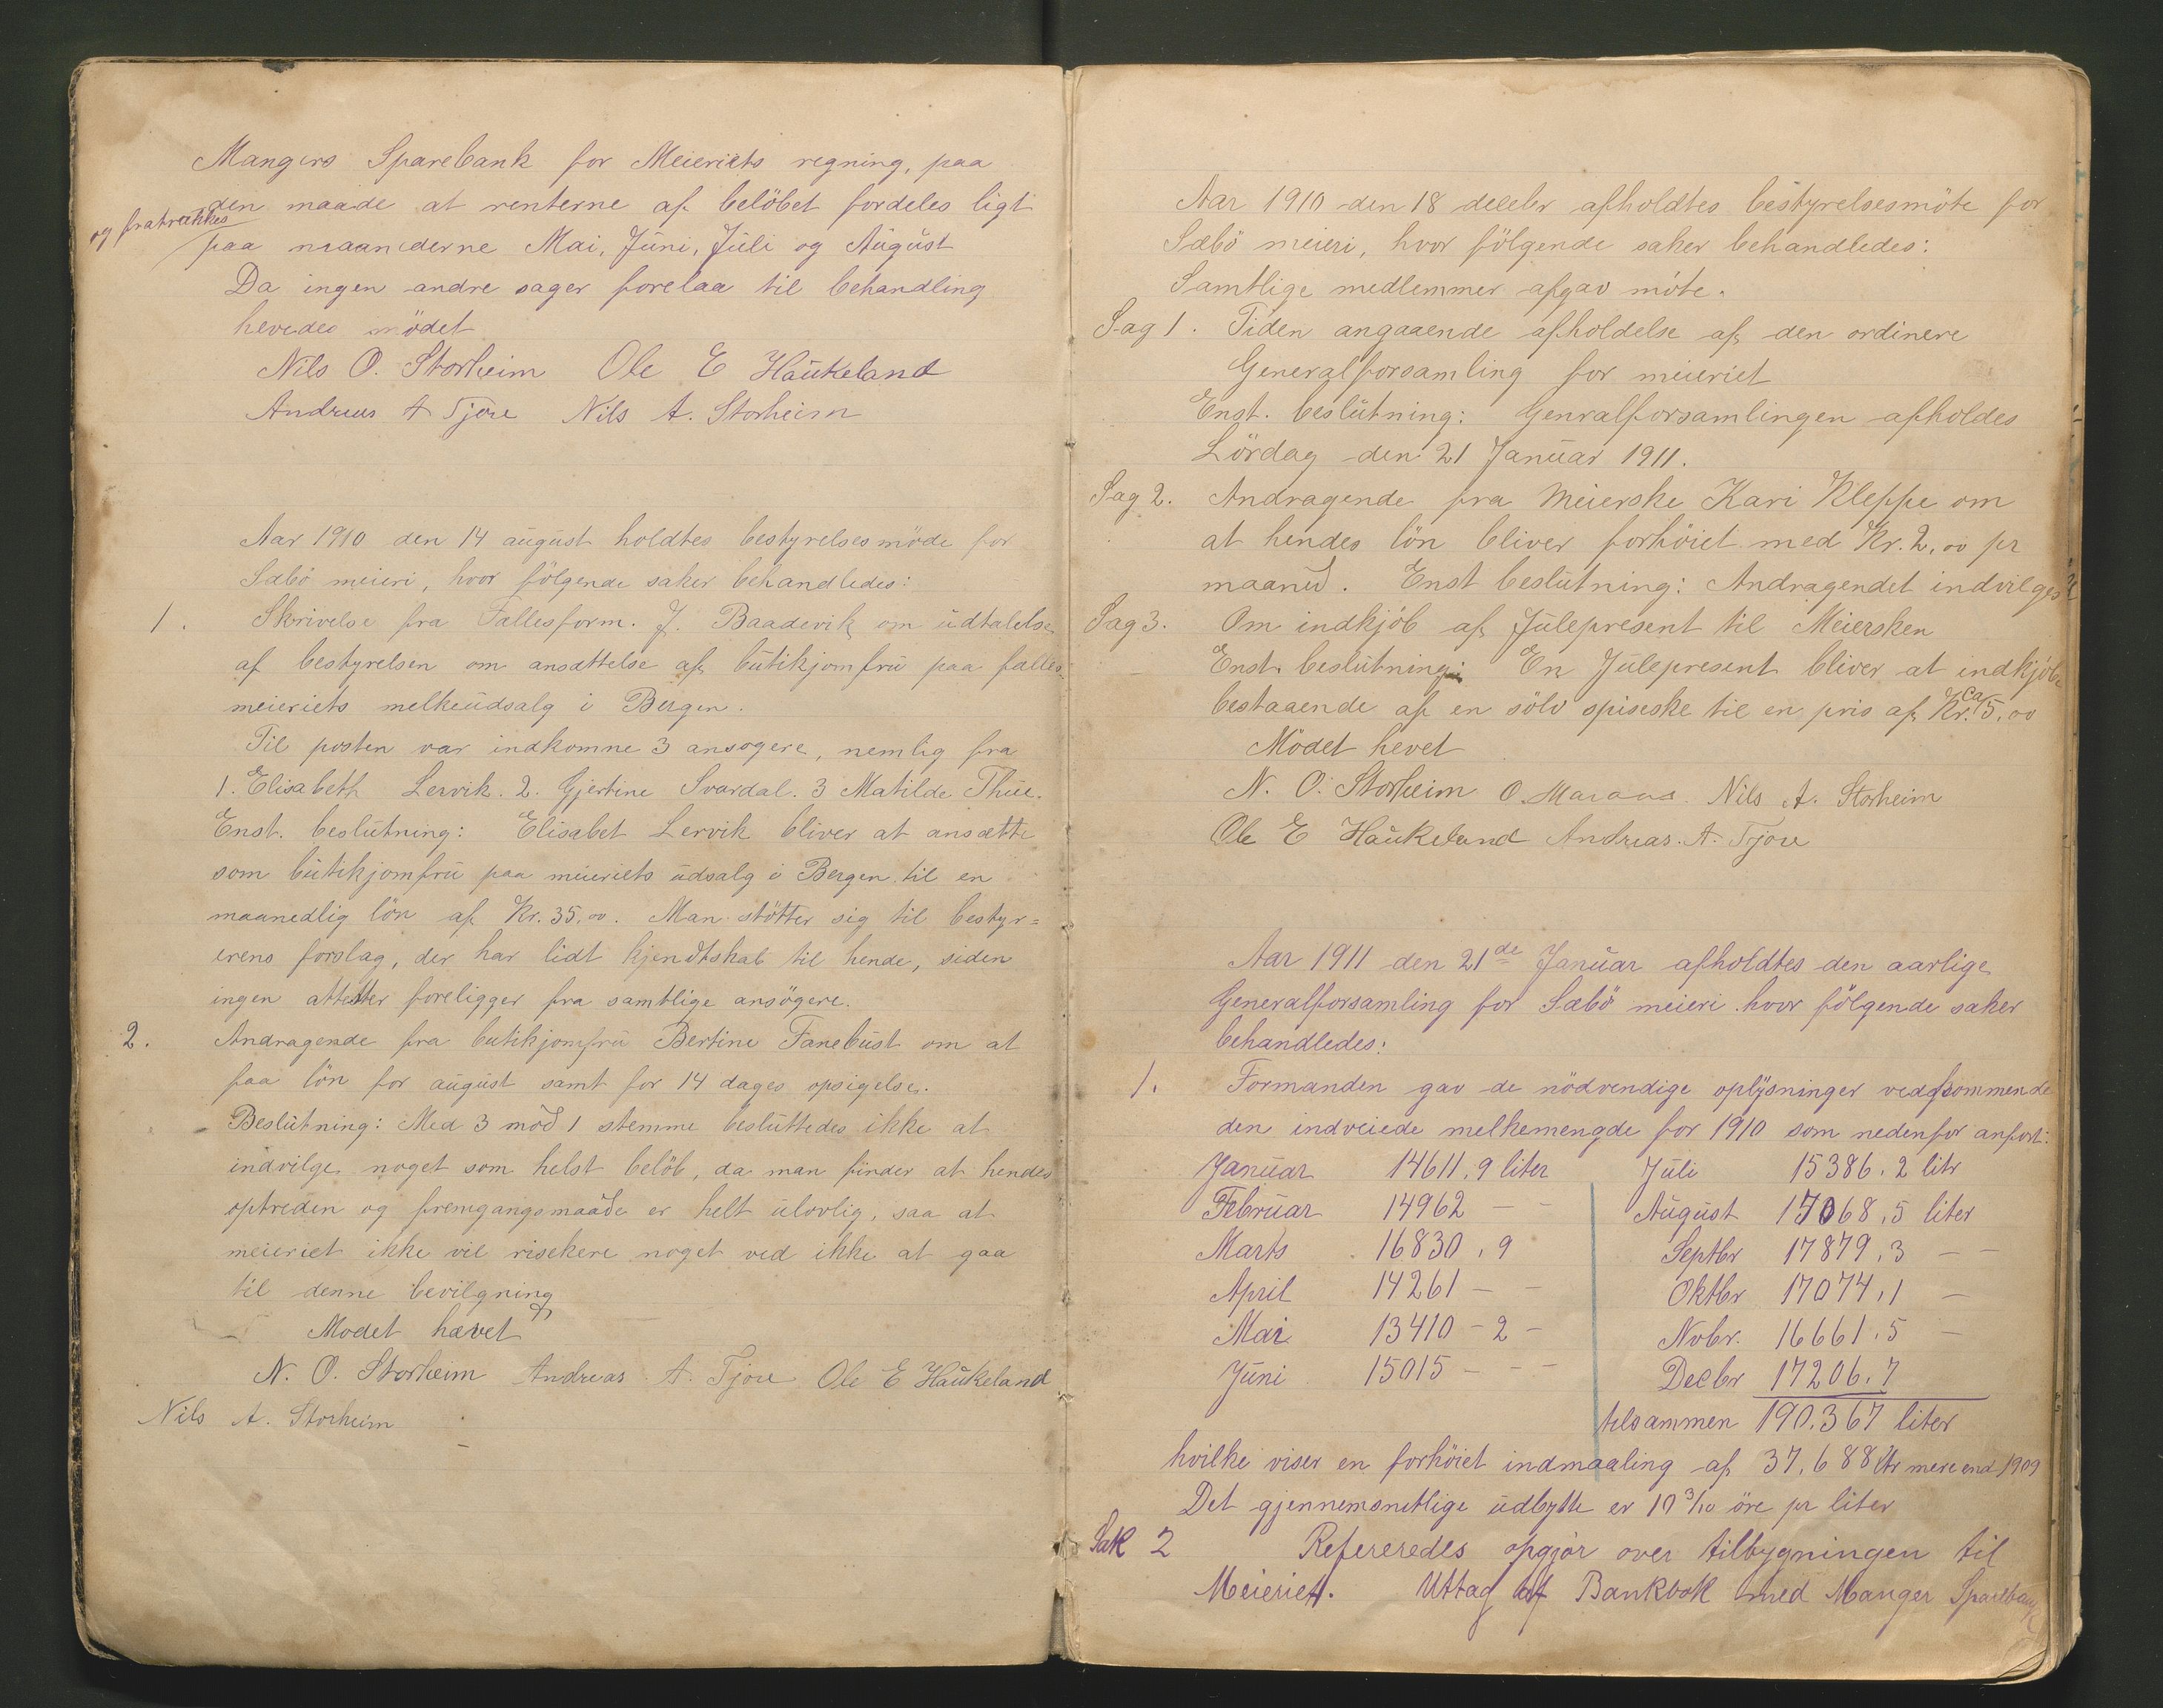 Mangers Sparebank for Meieriets regning, paa
den maade at renterne af belöbet fordeles ligt
og fratrækkes
paa maanederne Mai, Juni, Juli og August
Da ingen andre sager forelaa til behandling
hevedes mödet
Nils O. Storheim Ole E Haukeland
Andreas A Tjore Nils A. Storheim
Aar 1910 den 14 august holdtes bestyrelsesmöde for
Sæbö meieri, hvor fölgende saker behandledes:
1. Skrivelse fra Fællesform. J. Baadevik om udtalelse
af bestyrelsen om ansættelse af butikjomfru paa fælles-
meieriets melkeudsalg i Bergen.
Til posten var indkomne 3 ansogere, nemlig fra
1. Elisabeth Lervik. 2. Gjertine Svardal. 3 Matilde Thue.
Enst. beslutning: Elisabet Lervik bliver at ansætte
som butikjomfru paa meieriets udsalg i Bergen til en
maanedlig lön af Kr. 35,00. Man stötter sig til bestyr=
erens forslag, der har lidt kjendtskab til hende, siden
ingen attester foreligger fra samtlige ansögere.
2. Andragende fra butikjomfru Bertine Fanebust om at
faa lön for august samt for 14 dages opsigelse.
Beslutning: Med 3 mod 1 stemme besluttedes ikke at
indvilge noget som helst belöb, da man finder at hendes
optreden og fremgangsmaade er helt ulovlig, saa at
meieriet ikke vil risekere noget ved ikke at gaa
til denne bevilgning
Modet hævet
N. O. Storheim Andreas A. Tjore Ole E Haukeland
Nils A. Storheim
Aar 1910 den 18 decebr afholdtes bestyrelsesmöte for
Sæbö meieri, hvor fölgende saker behandledes:
Samtlige medlemmer afgav möte.
Sag 1. Tiden angaaende afholdelse af den ordinere
Generalforsamling for meieriet
Enst. beslutning: Genralforsamlingen afholdes
Lördag den 21 Januar 1911.
Sag 2. Andragende fra Meierske Kari Kleppe om
at hendes lön bliver forhöiet med Kr. 2,00 pr
maaned. Enst beslutning: Andragendet indvilges
Sag 3. Om indkjöb af Julepresent til Meiersken
Enst. beslutning: En Julepresent bliver at indkjöbe
bestaaende af en sölv spiseske til en pris af Kr. ca 5,00
Mödet hevet
N. O. Storheim O. Maraas. Nils A. Storheim
Ole E Haukeland Andreas. A. Tjore
Aar 1911 den 21de Januar afholdtes den aarlige
Generalforsamling for Sæbö meieri hvor fölgende saker
behandledes:
1. Formanden gav de nödvendige oplysninger vedkommende
den indveiede melkemengde for 1910 som nedenfor anfört:
Januar 14611,9 liter Juli 15386.2 litr
Februar 14962 - - August 17068,5 liter
Marts 16830,9 Septbr 17879,3 - -
April 14261 - - Oktbr 17074,1 -
Mai 13410-2- Nobr. 16661,5 -
Juni 15015 - - - Decbr 17206.7
tilsammen 190.367 liter
hvilke viser en forhöiet indmaaling af 37,688 ltr mere end 1909
Det gjennemsnitlige udbytte er 10 3/10 öre pr liter
Sak 2 Refereredes opgjör over tilbygningen til
Meieriet. Uttag af Bankbok med Manger Sparebank